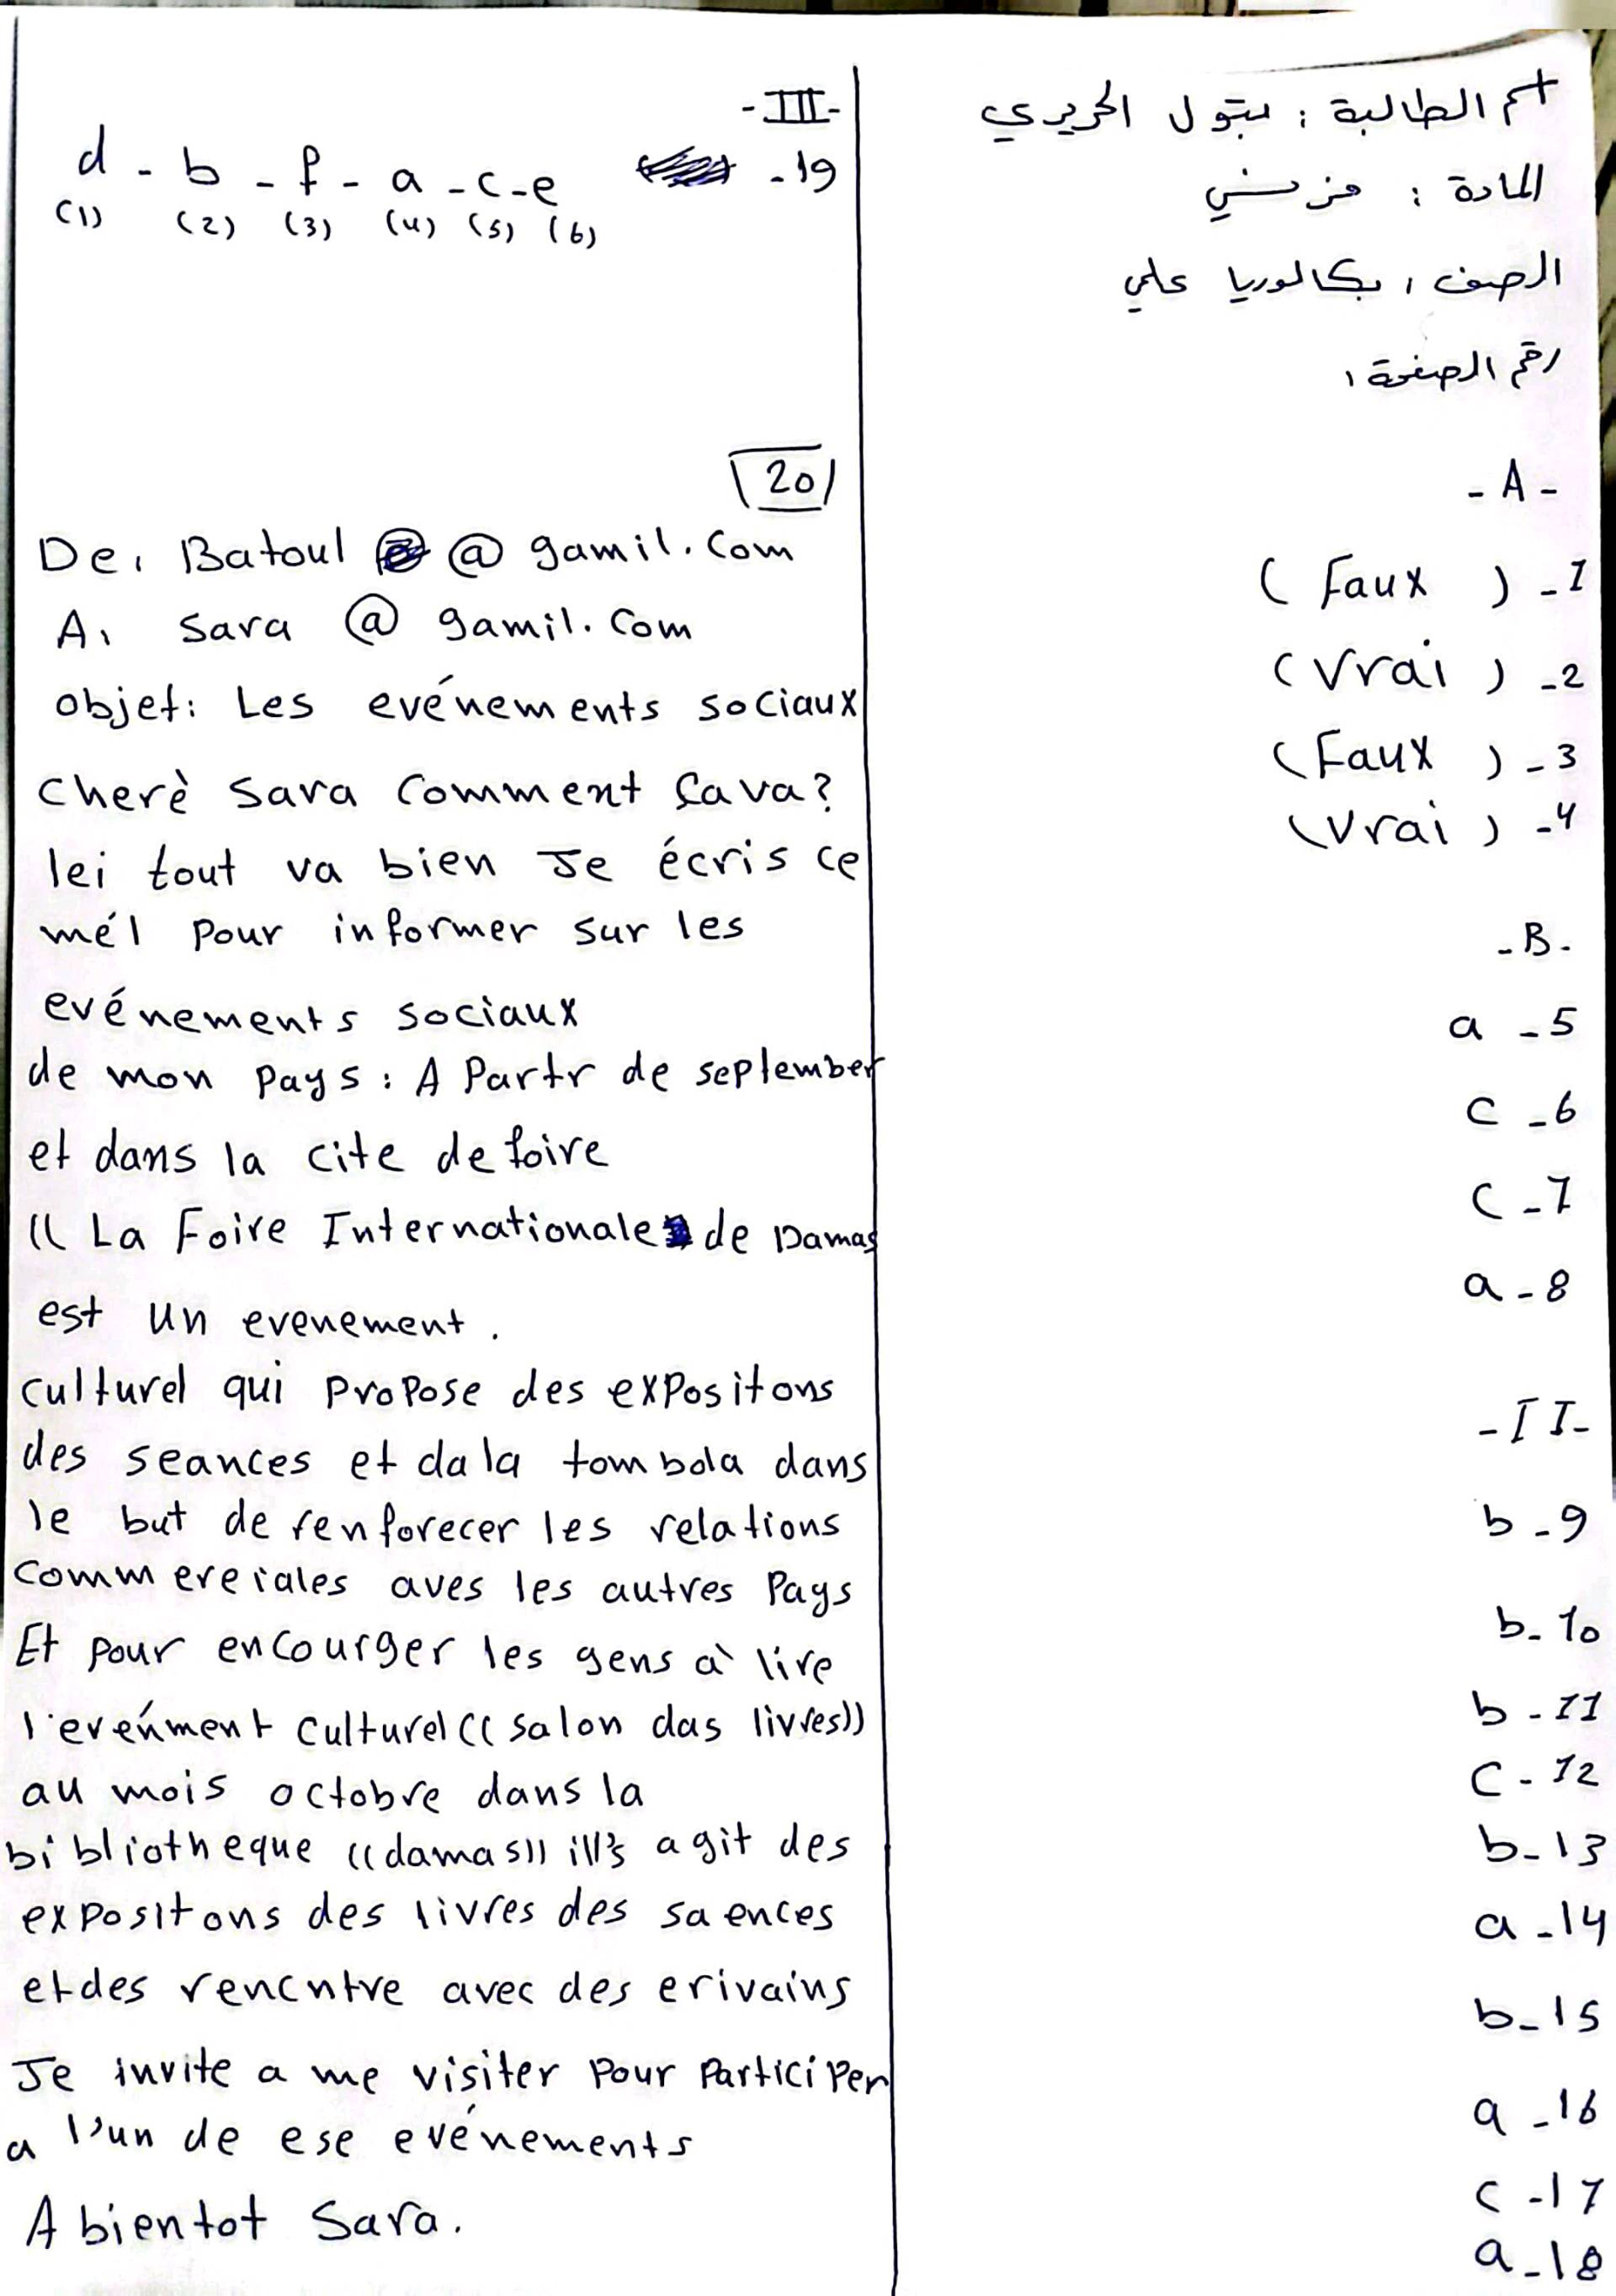 اسم الطالبة : بتول الحريري
المادة : فرنسي
الصف : بكالوريا علمي
رقم الصفحة :
- A -
( Faux ) - 1
( Vrai ) - 2
( Faux ) - 3
( Vrai ) - 4
- B -
a - 5
c - 6
c - 7
a - 8
- II -
b - 9
b - 10
b - 11
c - 12
b - 13
a - 14
b - 15
a - 16
c - 17
a - 18
- III -
d - b - f - a - c - e - 19
(1) (2) (3) (4) (5) (6)
20
De: Batoul @ gamil.com
A: Sara @ gamil.com
objet: Les evénements sociaux
cherè Sara comment çava?
Ici tout va bien Je écris ce
mél pour informer sur les
evénements sociaux
de mon pays : A Partr de september
et dans la cite de foire
(( La Foire Internationale de Damas
est un evenement .
culturel qui propose des expositons
des seances et da la tombola dans
le but de renforecer les relations
commereiales aves les autres Pays
Et pour encourger les gens à lire
l'evenment culturel (( salon das livres))
au mois octobre dans la
bibliotheque ((damas)) il's agit des
expositons des livres des saences
et des rencntre avec des erivains
Je invite a me visiter pour Participer
a l'un de ese evénements
A bientot Sara.